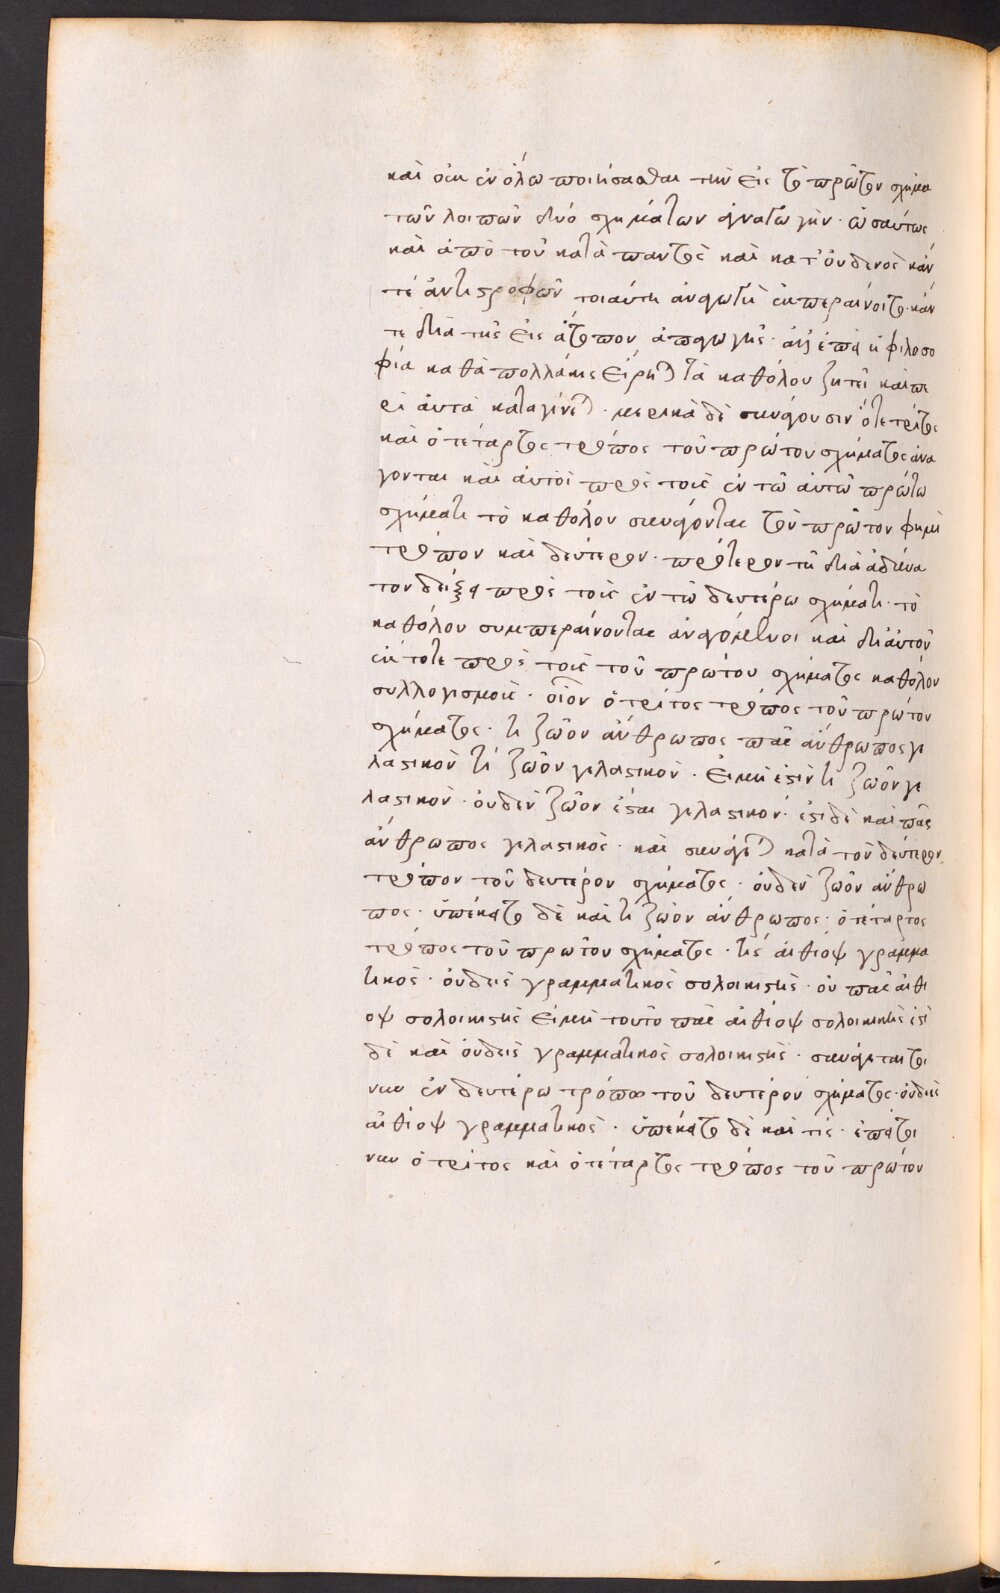 καὶ οὐκ ἐν ὅλω ποιήσασθαι τὴν εἰς τὸ πρῶτον σχῆμα
τῶν λοιπῶν δύο σχημάτων ἀναγωγήν· ὡσαύτως
καὶ ἀπὸ τοῦ κατὰ παντὸς καὶ κατ' οὐδενὸς κάν
τε ἀντιστροφῶν τοιαύτη ἀναγωγὴ ἐκπεραίνοιτο· κάν
τε διὰ τῆς εἰς ἄτοπον ἀπαγωγῆς· ἀλλ' ἐπεὶ ἡ φιλοσο
φία καθὰ πολλάκις εἴρηται τὰ καθόλου ζητεῖ καὶ πε
ρὶ αὐτὰ καταγίνεται· μερικὰ δὲ συνάγουσιν ὅτε τρίτος
καὶ ὁ τέταρτος τρόπος τοῦ πρώτου σχήματος ἀνά
γονται καὶ αὐτοὶ πρὸς τοὺς ἐν τῶ αὐτῶ πρώτω
σχήματι τὸ καθόλου συνάγοντας τὸν πρῶτον φημὶ
τρόπον καὶ δεύτερον· πρότερον τῆ διὰ ἀδυνά
του δείξει πρὸς τοὺς ἐν τῶ δευτέρω σχήματι· τὸ
καθόλου συμπεραίνοντας ἀναγόμενοι καὶ δι' αὐτοῦ
ἐκ τότε πρὸς τοὺς τοῦ πρώτου σχήματος καθόλου
συλλογισμοὺς· οἷον ὁ τρίτος τρόπος τοῦ πρώτου
σχήματος· τὶ ζῶον ἄνθρωπος πᾶς ἄνθρωπος γε
λαστικὸν τὶ ζῶον γελαστικὸν· εἰ μὴ ἐστὶν τὶ ζῶον γε
λαστικὸν· οὐδὲν ζῶον ἔσται γελαστικόν· ἐστὶ δὲ καὶ πᾶς
ἄνθρωπος γελαστικὸς· καὶ συνάγεται κατὰ τὸν δεύτερον
τρόπον τοῦ δευτέρου σχήματος· οὐδὲν ζῶον ἄνθρω
πος· ὑπέκειτο δὲ καὶ τὶ ζῶον ἄνθρωπος· ὁ τέταρτος
τρόπος τοῦ πρώτου σχήματος· τὶς αἰθίοψ γραμμα
τικὸς· οὐδεὶς γραμματικὸς σολοικιστὴς· οὐ πᾶς αἰθί
οψ σολοικιστὴς εἰ μὴ τοῦτο πᾶς αἰθίοψ σολοικιστὴς ἐστὶ
δὲ καὶ οὐδεὶς γραμματικὸς σολοικιστὴς· συνάγεται τοί
νυν ἐν δευτέρω τρόπω τοῦ δευτέρου σχήματος· οὐδεὶς
αἰθίοψ γραμματικὸς· ὑπέκειτο δὲ καὶ τὶς· ἐπεὶ τοί
νυν ὁ τρίτος καὶ ὁ τέταρτος τρόπος τοῦ πρώτου